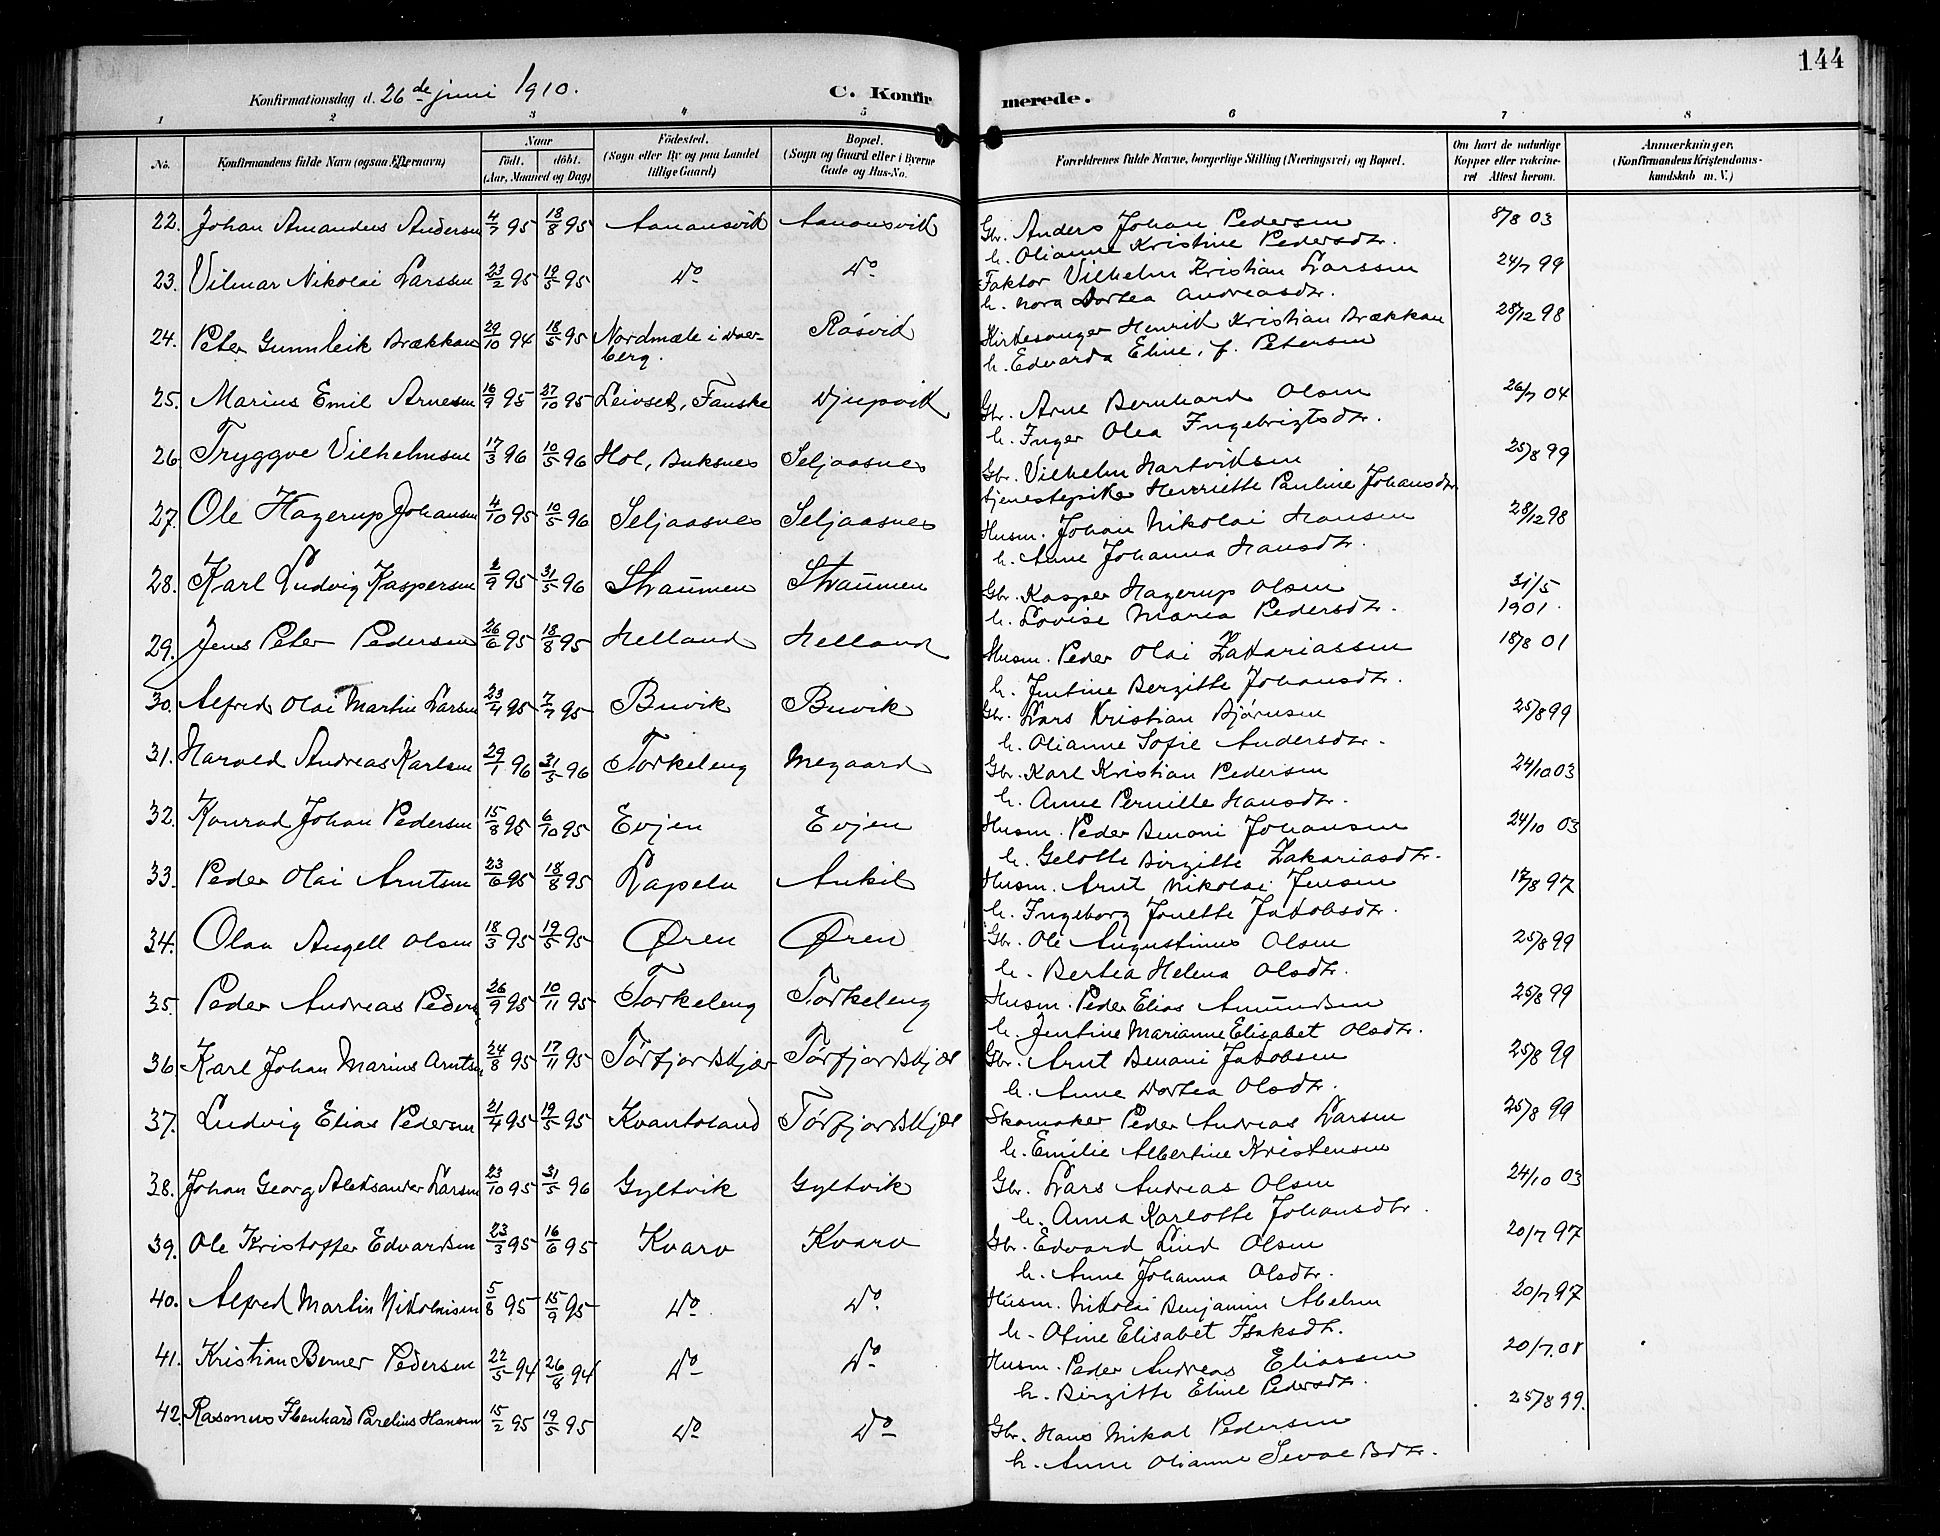 144
Konfirmationsdag d. 26de juni 1910. C. Konfirmerede.
1 2 3 4 5 6 7 8
No. Konfirmandens fulde Navn (ogsaa Efternavn) Naar født. døbt. (Aar, Maaned og Dag) Födested. (Sogn eller By og paa Landet tillige Gaard) Bopæl. (Sogn og Gaard eller i Byerne Gade og Hus-No. Forældrenes fulde Navne, borgerlige Stilling (Næringsvei) og Bopæl. Om havt de naturlige Kopper eller vakcineret Attest herom. Anmerkninger. (Konfirmandens Kristendomskundskab m. V.)
22. Johan Amandus Andersen 4/7 95 18/8 95 Aanansvik Aanansvik Gbr. Anders Johan Pedersen 8/8 03
h. Olianne Kristine Pedersdtr.
23. Vilmar Nikolai Larssen 23/2 95 19/5 95 Do Do Faktor Vilhelm Kristian Larssen 24/7 99
h. Nora Dortea Andreasdtr.
24. Peter Gunnleik Brækkan 29/10 94 18/5 95 Nordmæle i Daverberg. Røsvik Kirkesanger Henrik Kristian Brækkan 28/12 98
h. Edvarda Eline, f. Petersen
25. Marius Emil Arnesen 16/9 95 27/10 95 Leivset, Fauske Djupvik Gbr. Arne Bernhard Olsen 26/7 04
h. Inger Olea Ingebrigtsdtr.
26. Tryggve Vilhelmsen 17/3 96 10/5 96 Hol, Buksnes Seljaasnes Gbr. Vilhelm Hartviksen 25/8 99
tjenestepike Henriette Pauline Johansdtr
27. Ole Hagerup Johansen 4/10 95 10/5 96 Seljaasnes Seljaasnes Husm. Johan Nikolai Hansen 28/12 98
h. Anne Johanna Hansdtr.
28. Karl Ludvig Kaspersen 2/9 95 31/5 96 Straumen Straumen Gbr. Kasper Hagerup Olsen 31/5 1901.
h. Lovise Marea Pedersdtr.
29. Jens Peter Pedersen 26/6 95 18/8 95 Helland Helland Husm. Peder Olai Zakariassen 18/8 01
h. Jentine Bergitte Johansdtr.
30. Alfred Olai Martin Larsen 23/4 95 7/7 95 Buvik Buvik Gbr. Lars Kristian Bjørnsen 25/8 99
h. Olianne Sofie Andersdtr.
31. Harald Andreas Karlsen 29/1 96 31/5 96 Torkeleng Megaard Gbr. Karl Kristian Pedersen 24/10 03
h. Anne Pernille Hansdtr.
32. Konrad Johan Pedersen 15/8 95 6/10 95 Evjen Evjen Husm. Peder Benoni Johansen 24/10 03
h. Gelotte Birgitte Zakariasdtr.
33. Peder Olai Arntsen 23/6 95 18/8 95 Lapelv Ankil Husm. Arnt Nikolai Jensen 17/8 97
h. Ingeborg Jonette Jakobsdtr.
34. Olav Angell Olsen 18/3 95 19/5 95 Øren Øren Gbr. Ole Augustinus Olsen 25/8 99
h. Bertea Helena Olsdtr.
35. Peder Andreas Peders 26/9 95 10/11 95 Torkeleng Torkeleng Husm. Peder Elias Amundsen 25/8 99
h. Jentine Marianne Elisabet Olsdtr.
36. Karl Johan Marius Arntsen 24/8 95 17/11 95 Tørfjordskjær Tørfjordskjær Gbr. Arnt Benoni Jakobsen 25/8 99
h. Anne Dortea Olsdtr.
37. Ludvig Elias Pedersen 21/4 95 19/5 95 Kvantoland Tørfjordskjær Skomaker Peder Andreas Larsen 25/8 99
h. Emilie Albertine Kristensen
38. Johan Georg Aleksander Larsen 23/10 95 31/5 96 Gyltvik Gyltvik Gbr. Lars Andreas Olsen 24/10 03
h. Anna Karlotte Johansdtr.
39. Ole Kristoffer Edvardsen 23/3 95 16/6 95 Kvarv Kvarv Gbr. Edvard Lind Olsen 20/7 97
h. Anne Johanna Olsdtr.
40. Alfred Martin Nikolaisen 5/8 95 15/9 95 Do Do Husm. Nikolai Benjamin Abelsen 20/7 97
h. Ofine Elisabet Isaksdtr.
41. Kristian Berner Pedersen 22/5 94 26/8 94 Do Do Husm. Peder Andreas Eliassen 20/7. 01
h. Birgitte Eline Pedersdtr.
42. Rasmus Ibenhard Parelius Hansen 15/2 95 19/5 95 Do Do Gbr. Hans Mikal Pedersen 25/8 99.
h. Anne Olianne Sevaldsdtr.